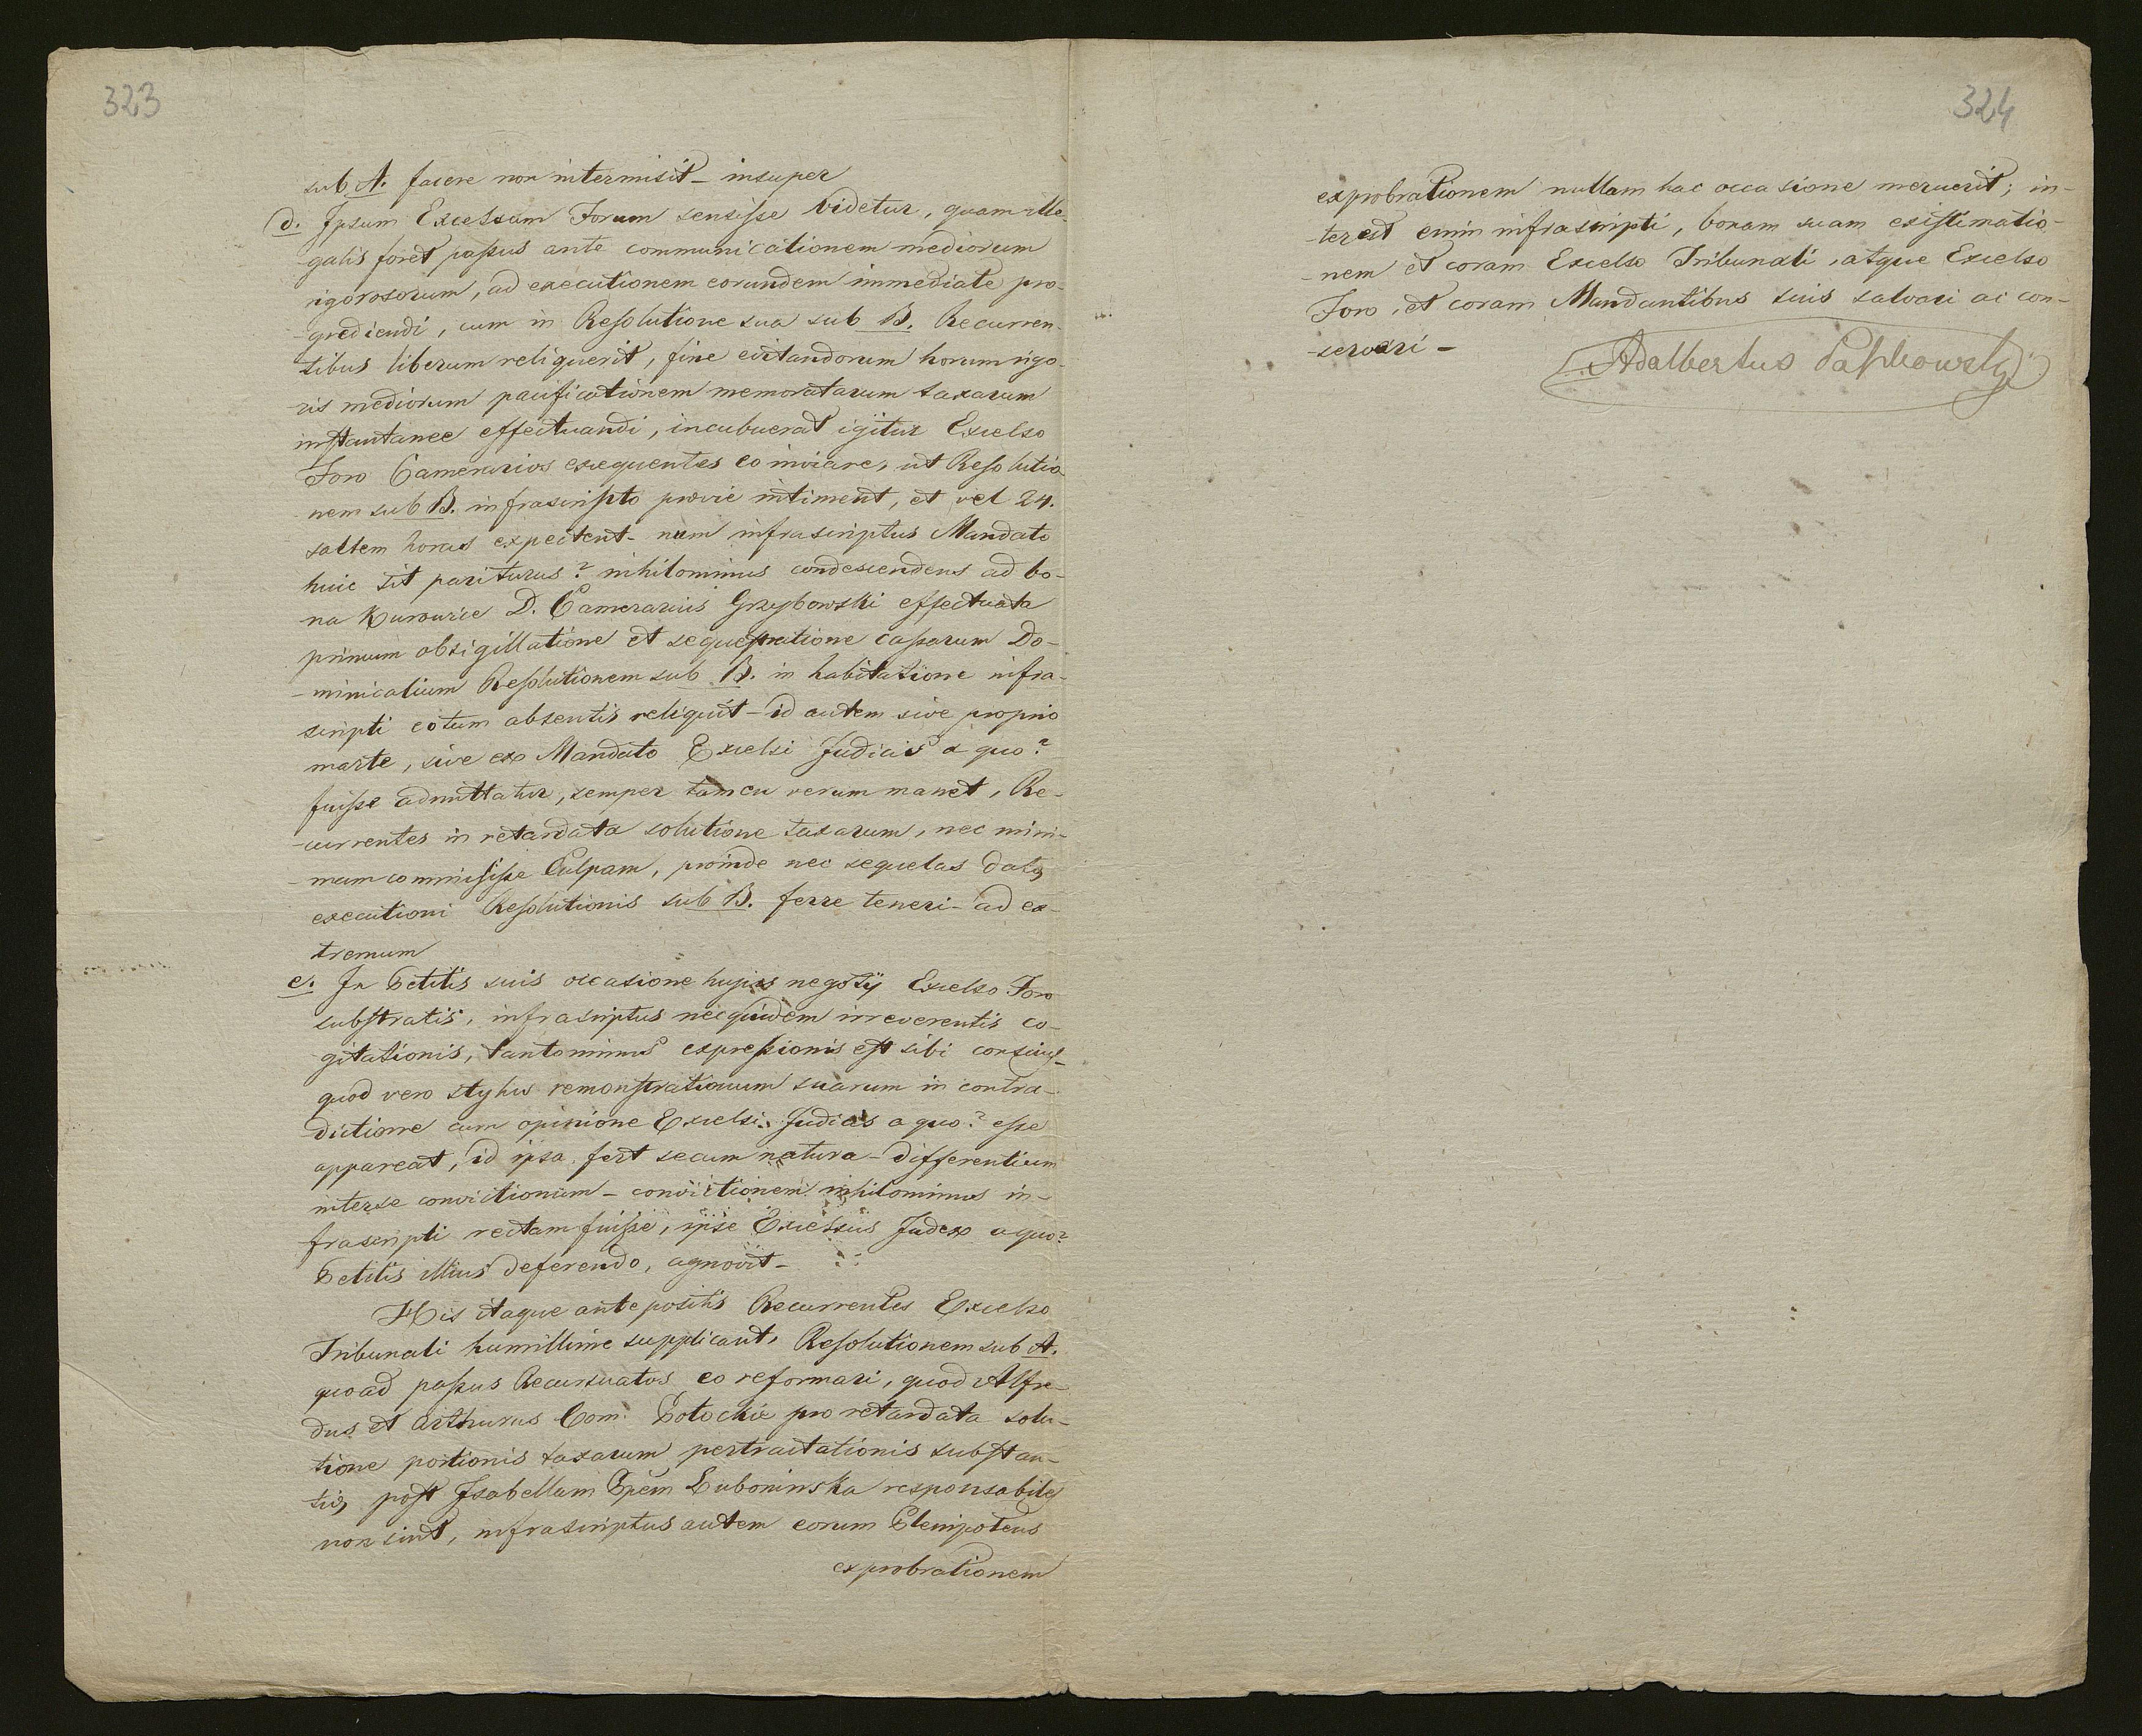 323
sub A. facere non intermisit - insuper
d. Ipsum Excelsum Forum sensisse videtur, quam ille-
galis foret passus ante communicationem mediorum
rigorosorum, ad executionem eorundem immediate pro-
grediendi, cum in Resolutione sua sub B. Recurren-
tibus liberum reliquerit, fine evitandorum horum rigo-
ris mediorum pacificationem memoratarum taxarum
instantanee effectuandi, incubuerat igitur Excelso
Foro Camerarios exequentes eo inviare, ut Resolutio-
nem sub B. infrascripto provie intiment, et vel 24.
saltem horas expectent - num infrascriptus Mandato
huic sit pariturus? nihilominus condescendens ad bo-
na Kurowice D. Camerarius Grzybowski effectuata
primum obsigillatione et sequestratione cassarum Do-
-minicalium Resolutionem sub B. in habitatione infra-
scripti eotum absentis reliquit - id autem sive proprio
marte, sive ex Mandato Excelsi Judicis a quo?
fuisse admittatur, semper tamen verum manet, Re-
-currentes in retardata solutione taxarum, nec mini-
-mam commisisse Culpam, proinde nec sequelas datæ
executioni Resolutionis sub B. ferre teneri - ad ex-
tremum
e. In Petitis suis occasione hujus negotij Excelso Foro
substratis, infrascriptus necquidem irreverentis co-
gitationis, tantominus expressionis est sibi conscius -
quod vero stylus remonstrationum suarum in contra-
dictione cum opinione Excelsi Judicis a quo? esse
appareat, id ipsa fert secum natura - differentium
interse convictionum - convictionem nihilominus in-
frascripti rectam fuisse, ipse Excelsus Judex a quo?
Petitis illius deferendo, agnovit -
His itaque antepositis Recurrentes Excelso
Tribunali humillime supplicant, Resolutionem sub A.
quoad passus Recursuatos eo reformari, quod Alfre-
dus et Arthurus Com. Potockie pro retardata solu-
tione portionis taxarum pertractationis substan-
tiæ post Isabellam Ppem Lubomirska responsabiles
non sint, infrascriptus autem eorum Plenipotens
exprobrationem
324
exprobrationem nullam hac occasione meruerit; in-
-terest enim infrascripti, bonam suam existimatio-
-nem et coram Excelso Tribunali, atque Excelso
Foro, et coram Mandantibus suis salvari ac con-
-servari -
Adalbertus